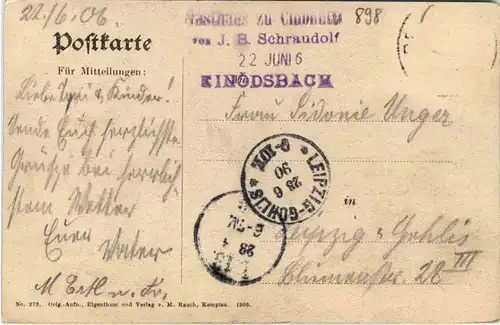 22/6.06.
Postkarte
Für Mitteilungen:
Liebe & Kinder!
Sende Euch herzlichste
Grüsse bei herrlich
stem Wetter
Euer
Vater
898
Gasthaus zu
von J. B. Schraudolf
22 JUNI 6
Frau Sidonie Unger
in
Leipzig-Gohlis
Blumenstr. 28 III
LEIPZIG-GOHLIS
25 6
No. 279. Orig.-Aufn., Eigenthum und Verlag v. M. Rauch, Kempten. 1905.